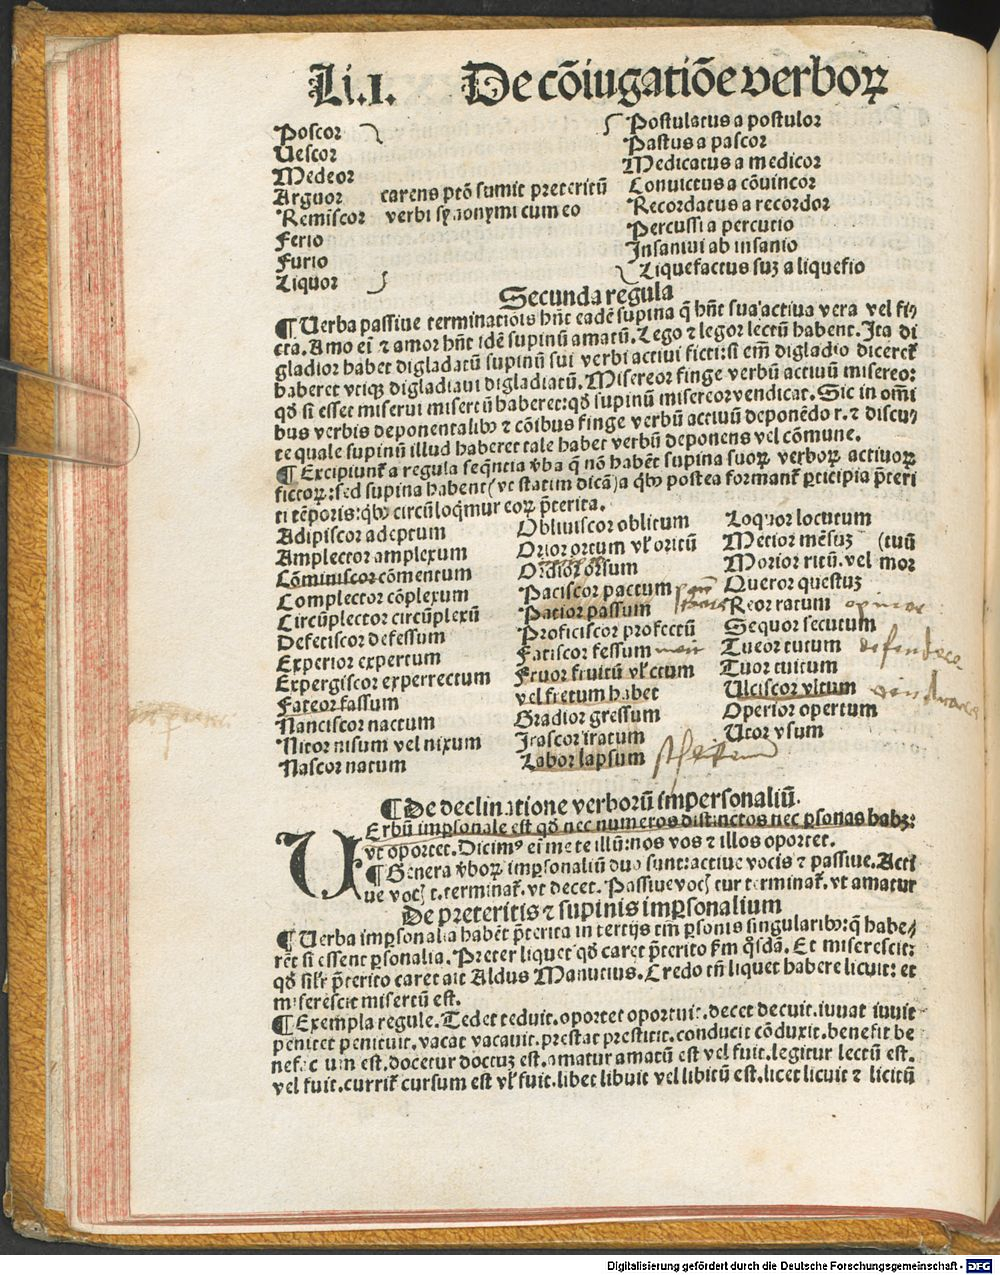 Li.I. De cõiugatiõe verboꝝ
Poscor Postulatus a postulor
Vescor Pastus a pascor
Medeor Medicatus a medicor
Arguor carens ptõ sumit preteritũ Conuictus a cõuincor
Remiscor verbi synonymi cum eo Recordatus a recordor
Ferio Percussi a percutio
Furio Insaniui ab insanio
Liquor Liquefactus suꝫ a liquefio
Secunda regula
¶ Verba passiue terminatiõis hñt eadẽ supina q̃ hñt sua actiua vera vel fi⸗
cta. Amo eĩ ⁊ amor hñt idẽ supinũ amatũ. Lego ⁊ legor lectũ habent. Ita di
gladior habet digladatũ supinũ sui verbi actiui ficti: si em̃ digladio diceret̃
haberet vtiqꝫ digladiaui digladiatũ. Misereor finge verbũ actiuũ misereo:
qđ si esset miserui misertũ haberet: qđ supinũ misereor vendicat. Sic in om̃i
bus verbis deponentalibꝰ ⁊ cõibus finge verbũ actiuũ deponẽdo r. ⁊ discu⸗
te quale supinũ illud haberet tale habet verbũ deponens vel cõmune.
¶ Excipiunt̃ a regula seq̃ntia v̓ba q̃ nõ habẽt supina suoꝝ verboꝝ actiuoꝝ
fictoꝝ: sed supina habent (vt statim dicã) a qbꝰ postea formant̃ ꝑticipia p̃teri
ti tẽporis: qbꝰ circũloq̃mur eoꝝ p̃terita.
Adipiscor adeptum Obliuiscor oblitum Loquor locutum
Amplector amplexum Orior ortum vl̓ oritũ Metior mẽsuꝫ (tuũ
Cõminiscor cõmentum Ordior orsum Morior ritũ. vel mor
Complector cõplexum Paciscor pactum Queror questuꝫ
Circũplector circũplexũ Patior passum Reor ratum opinor
Defetiscor defessum Proficiscor profectũ Sequor secutum
Experior expertum Fatiscor fessum Tueor tutum defendere
Expergiscor experrectum Fruor fruitũ vl̓ ctum Tuor tuitum
Fateor fassum vel fretum habet Ulciscor vltum
Nanciscor nactum Gradior gressum Operior opertum
Nitor nisum vel nixum Irascor iratum Utor vsum
Nascor natum Labor lapsum
¶ De declinatione verborũ impersonaliũ.
Verbũ imꝑsonale est qđ nec numeros distinctos nec ꝑsonas habꝫ:
vt oportet. Dicimꝰ ei me te illũ: nos vos ⁊ illos oportet.
¶ Genera v̓boꝝ imꝑsonalium duo sunt: actiue vocis ⁊ passiue. Acti
ue voc̃ t. terminat̃. vt decet. Passiue voc̃ tur terminat̃. vt amatur
De preteritis ⁊ supinis imꝑsonalium
¶ Verba imꝑsonalia habẽt p̃terita in tertijs tm̃ ꝑsonis singularibꝰ: q̃ habe⸗
rẽt si essent ꝑsonalia. Preter liquet qđ caret p̃terito f̃m q̃sdã. Et miserescit:
qđ sil̓r p̃terito caret ait Aldus Manutius. Credo tñ liquet habere licuit: et
miserescit misertũ est.
¶ Exempla regule. Tedet teduit. oportet oportuit. decet decuit. iuuat iuuit
penitet penituit. vacat vacauit. prestat prestitit. conducit cõduxit. benefit be
nefactum est. docetur doctuꝫ est. amatur amatũ est vel fuit. legitur lectũ est.
vel fuit. currit̃ cursum est vl̓ fuit. libet libuit vel libitũ est. licet licuit ⁊ licitũ
Digitalisierung gefördert durch die Deutsche Forschungsgemeinschaft - DFG